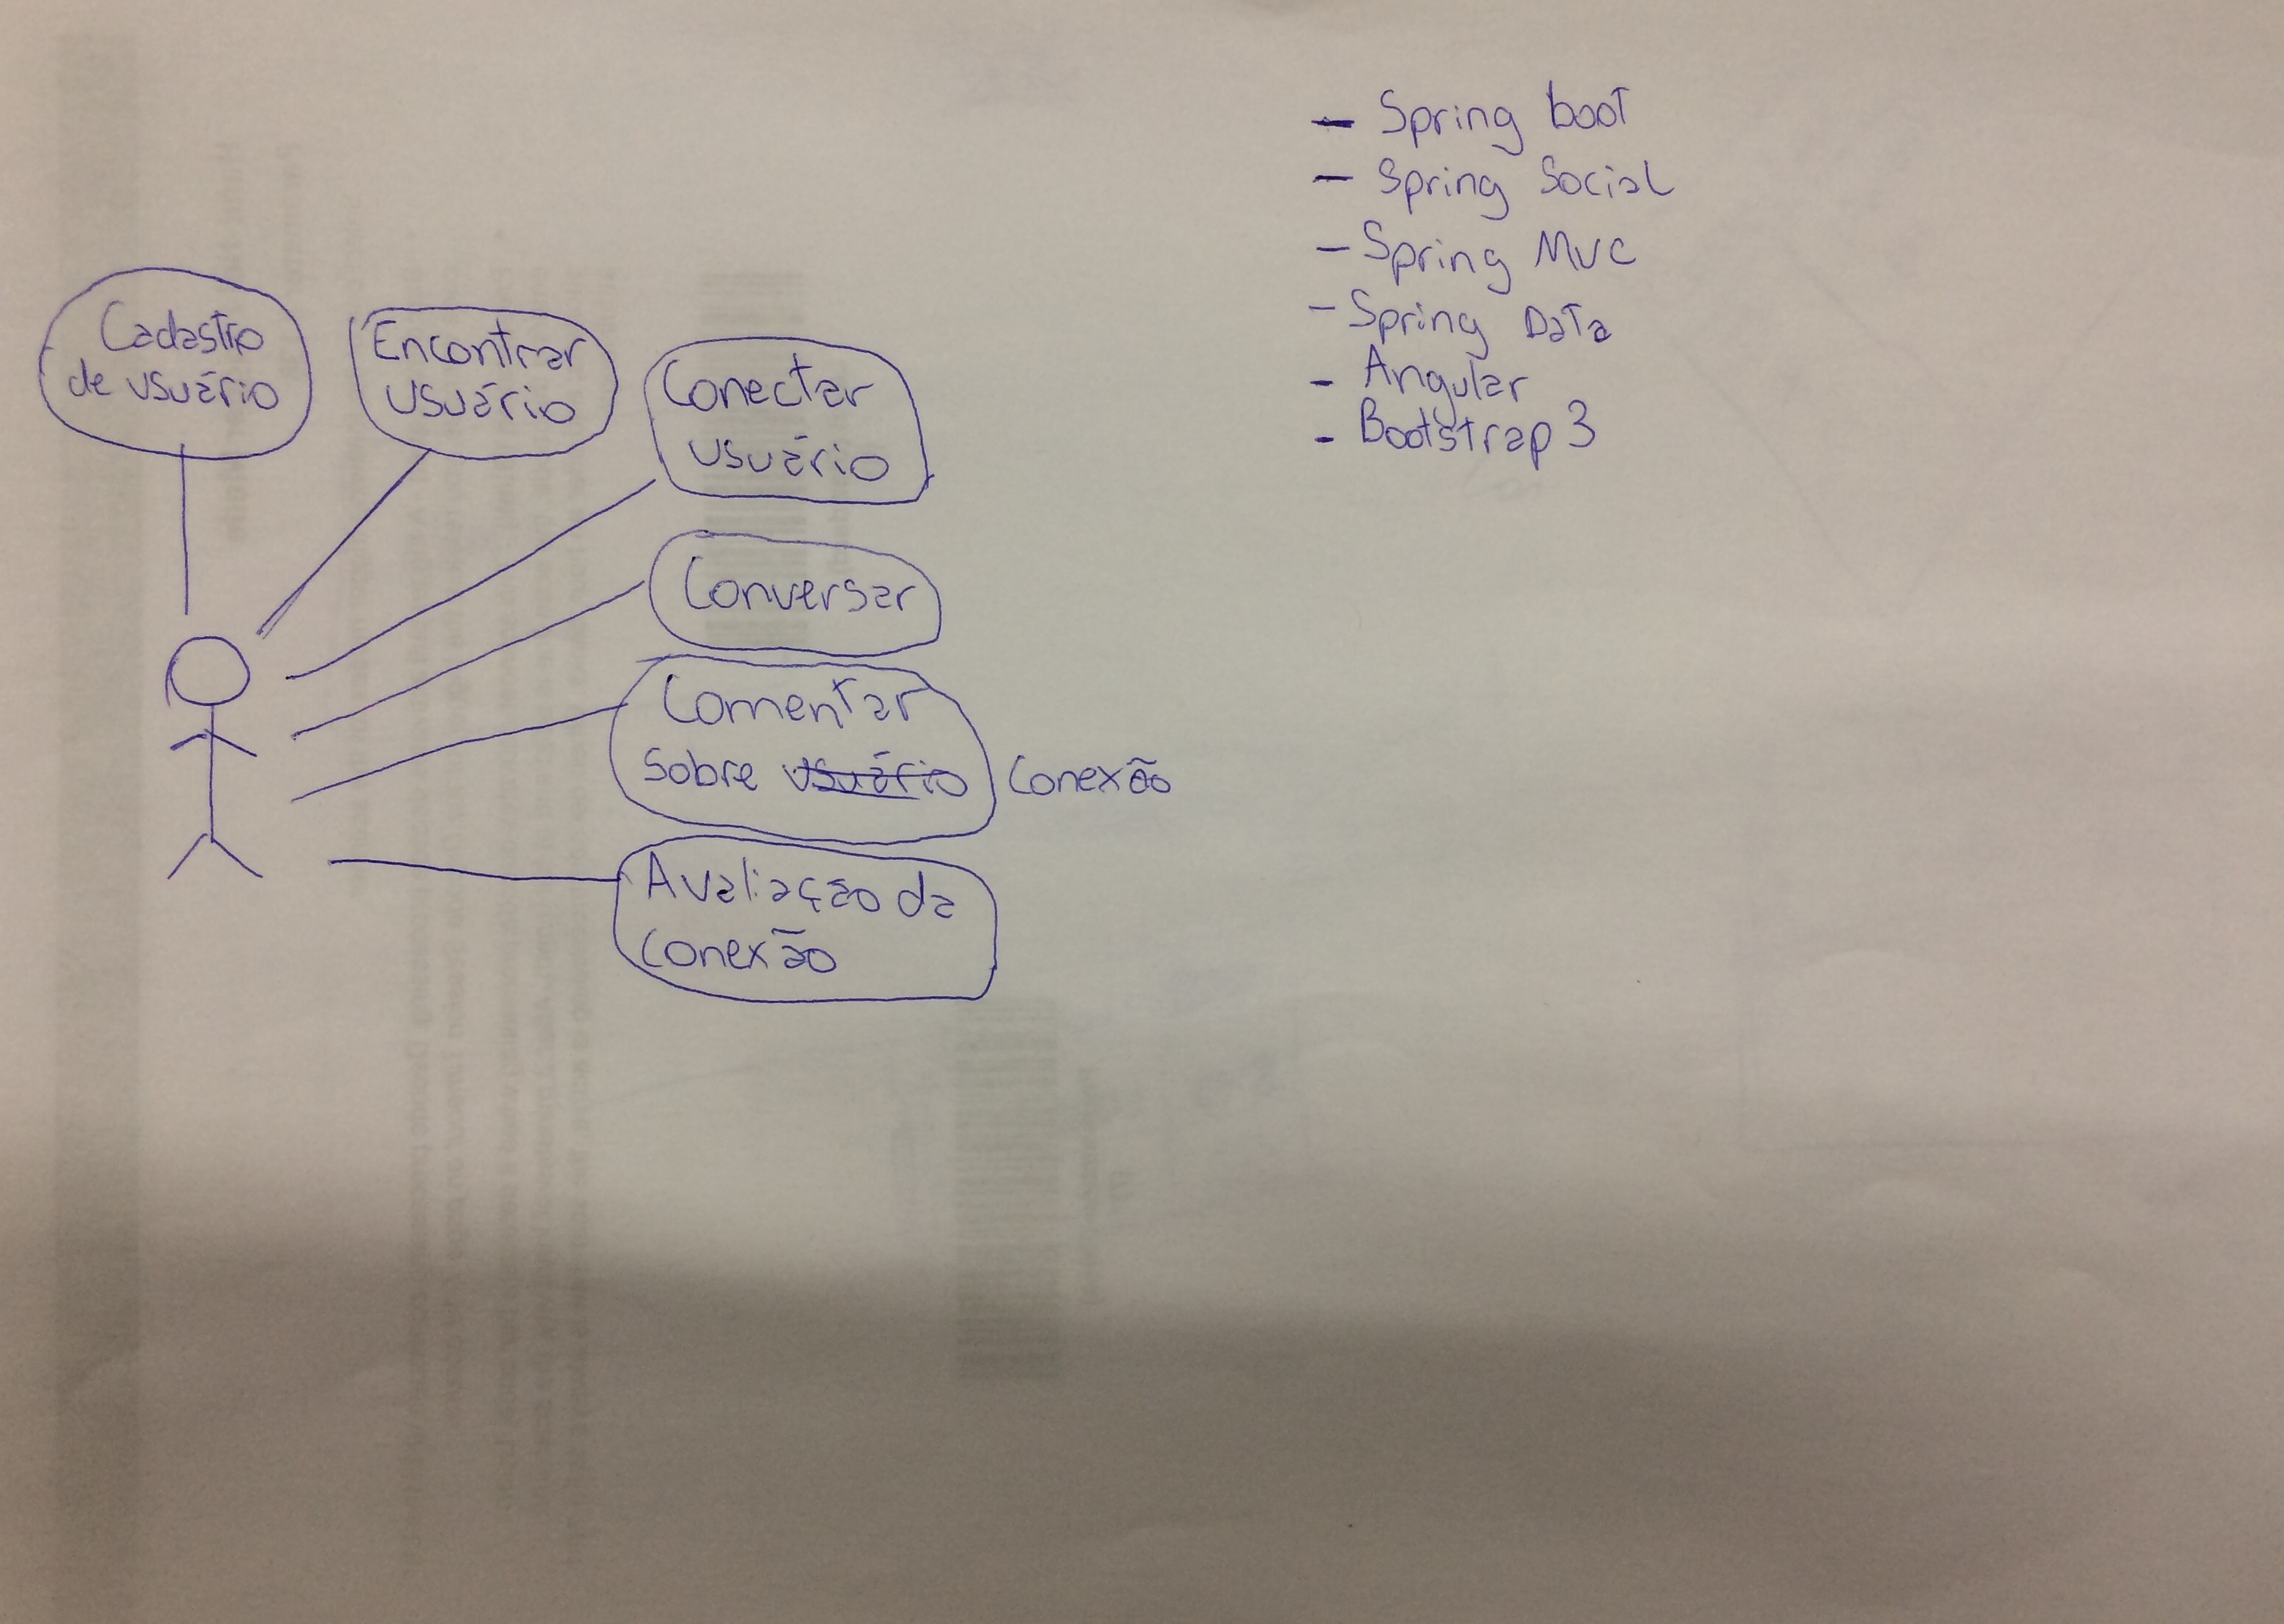 Cadastro
de usuário
Encontrar
usuário
Conectar
usuário
Conversar
Comentar
sobre usuário Conexão
Avaliação da
conexão
- Spring boot
- Spring Social
- Spring MVC
- Spring Data
- Angular
- Bootstrap 3